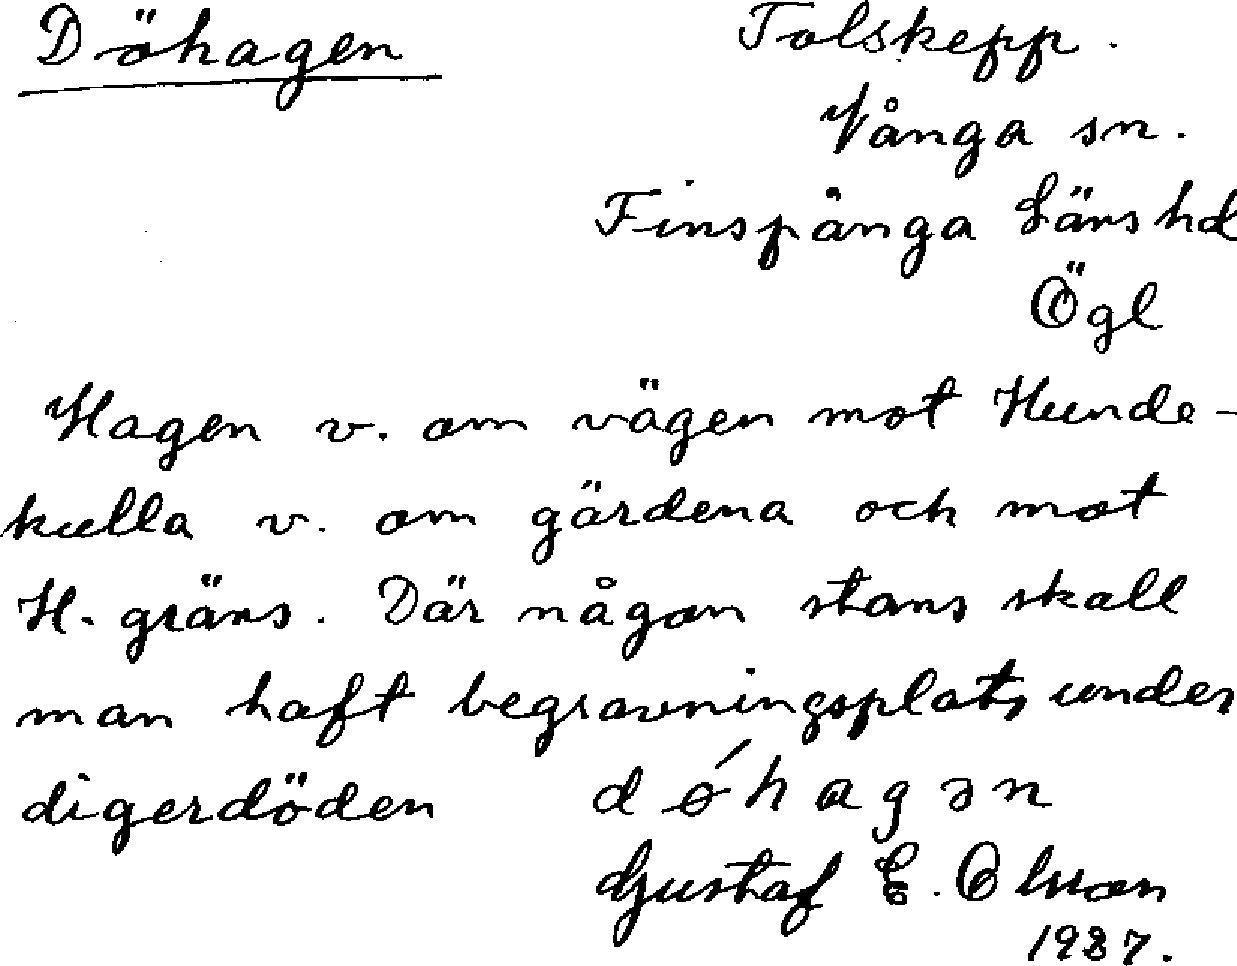 Döhagen
Tolskepp.
Vånga sn.
Finspånga Läns hd
Ögl
Hagen v. om vägen mot Hunde-
kulla v. om gärdena och mot
H. gräns. Där någon stans skall
man haft begravningsplats under
digerdöden
dǿhagən
Gustaf E. Olsson
1937.